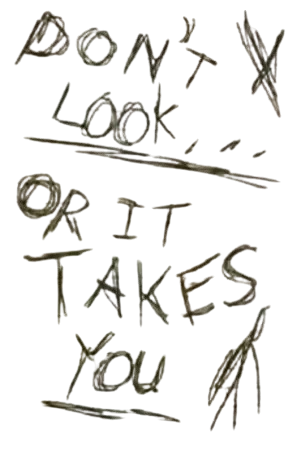 DON'T
LOOK....
OR IT
TAKES
YOU